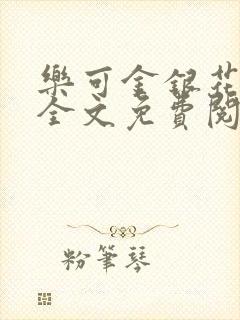 樂可金銀花
全文免費閱
粉筆琴